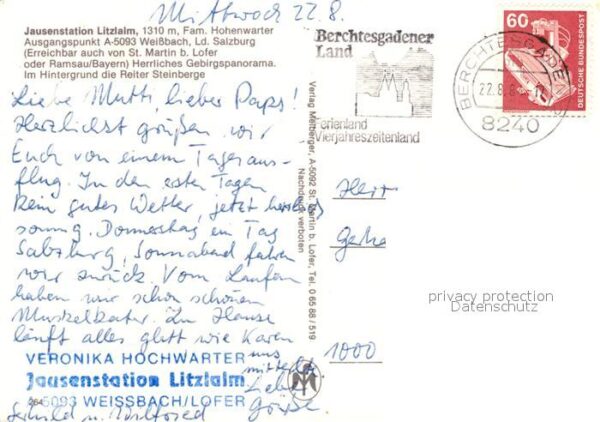 Mittwoch 22.8.
Jausenstation Litzlalm, 1310 m, Fam. Hohenwarter
Ausgangspunkt A-5093 Weißbach, Ld. Salzburg
(Erreichbar auch von St. Martin b. Lofer
oder Ramsau/Bayern) Herrliches Gebirgspanorama.
Im Hintergrund die Reiter Steinberge
Liebe Mutti, lieber Paps!
Herzlichst grüßen wir
Euch von einem Tagesaus-
flug. In den ersten Tagen
kein gutes Wetter, jetzt herrlich
sonnig. Donnerstag ein Tag
Salzburg, Sonnabend fahren
wir zurück. Vom Laufen
haben wir schon schönen
Muskelkater. Zu Hause
läuft alles glatt wie Karen
uns mitteilte
Liebe
Grüße
VERONIKA HOCHWARTER
Jausenstation Litzlalm
A-5093 WEISSBACH/LOFER
u. Wilfried
Verlag Metzger, A-5092 St. Martin b. Lofer, Tel. 0 65 88 / 519
Nachdruck verboten
Berchtesgadener
Land
Ferienland
Vierjahreszeitenland
BERCHTESGADEN
22.8.8
8240
60
DEUTSCHE BUNDESPOST
Herr
1000
privacy protection
Datenschutz